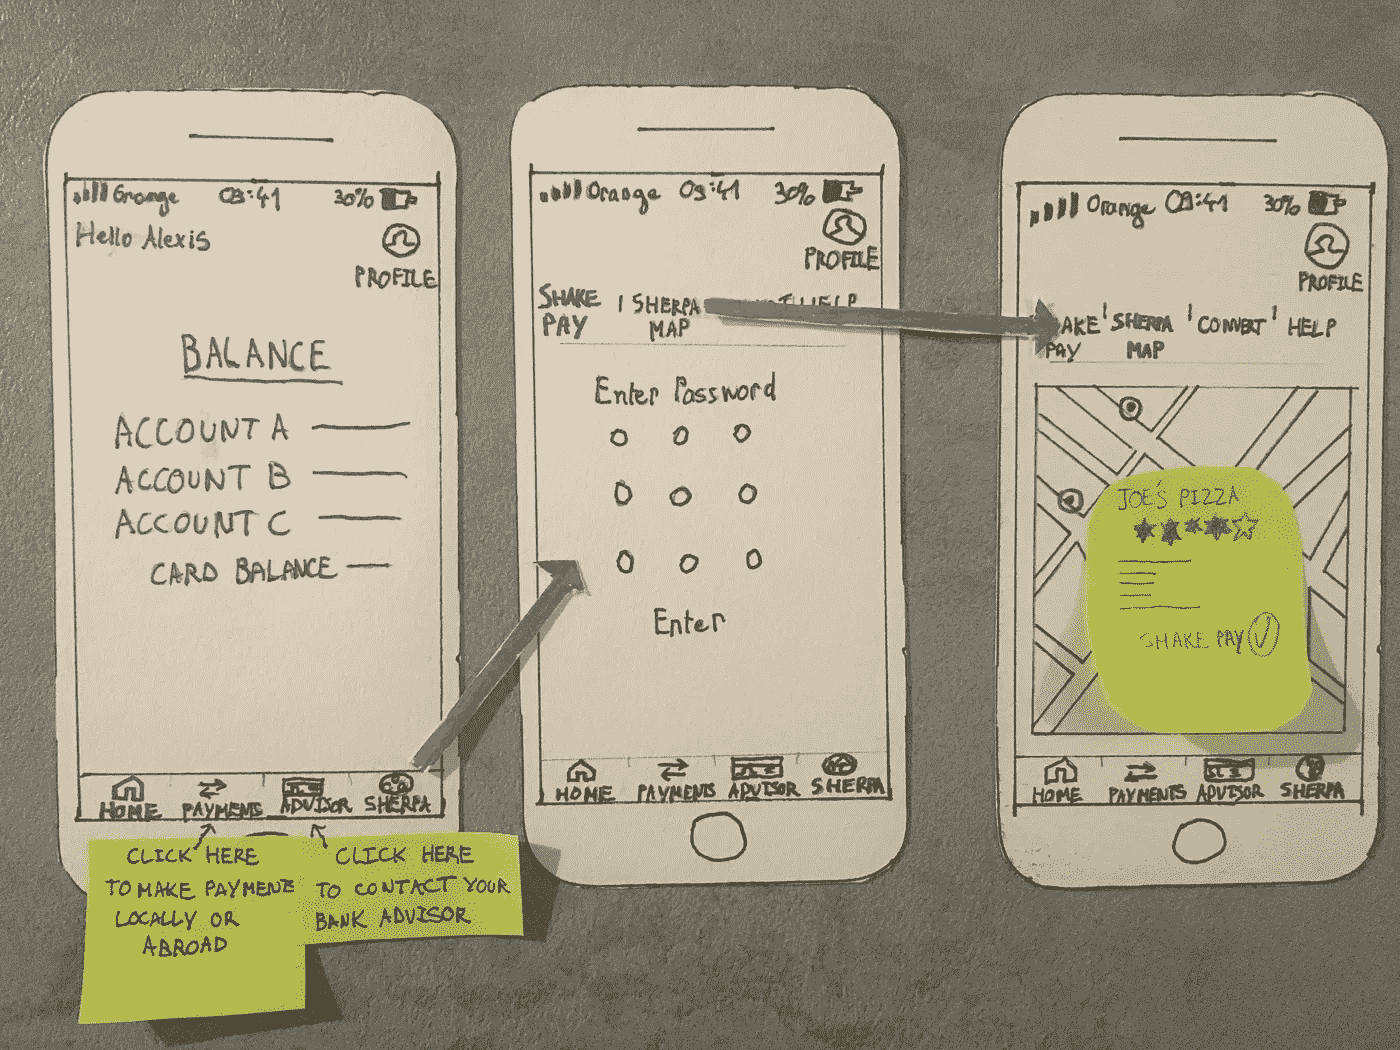 Orange 09:41 30%
Hello Alexis
PROFILE
BALANCE
ACCOUNT A
ACCOUNT B
ACCOUNT C
CARD BALANCE
HOME PAYMENTS ADVISOR SHERPA
CLICK HERE
TO MAKE PAYMENTS
LOCALLY OR
ABROAD
CLICK HERE
TO CONTACT YOUR
BANK ADVISOR
Orange 09:41 30%
PROFILE
SHAKE | SHERPA HELP
PAY MAP
Enter Password
Enter
HOME PAYMENTS ADVISOR SHERPA
Orange 09:41 30%
PROFILE
AKE | SHERPA | CONVERT | HELP
PAY MAP
JOE'S PIZZA
SHAKE PAY
HOME PAYMENTS ADVISOR SHERPA